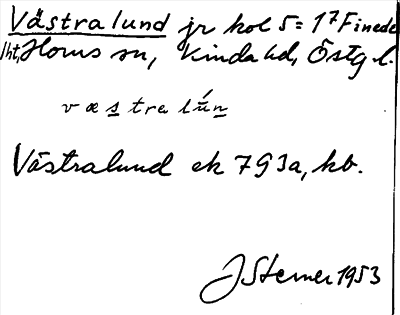 Västralund jr kol 5 = 1⁷ Finede
lht, Horns sn, Kinda hd, Östg l.
v æ s t r a l ú n
Västralund ek 7 G 3a, kb.
J Sterner 1953